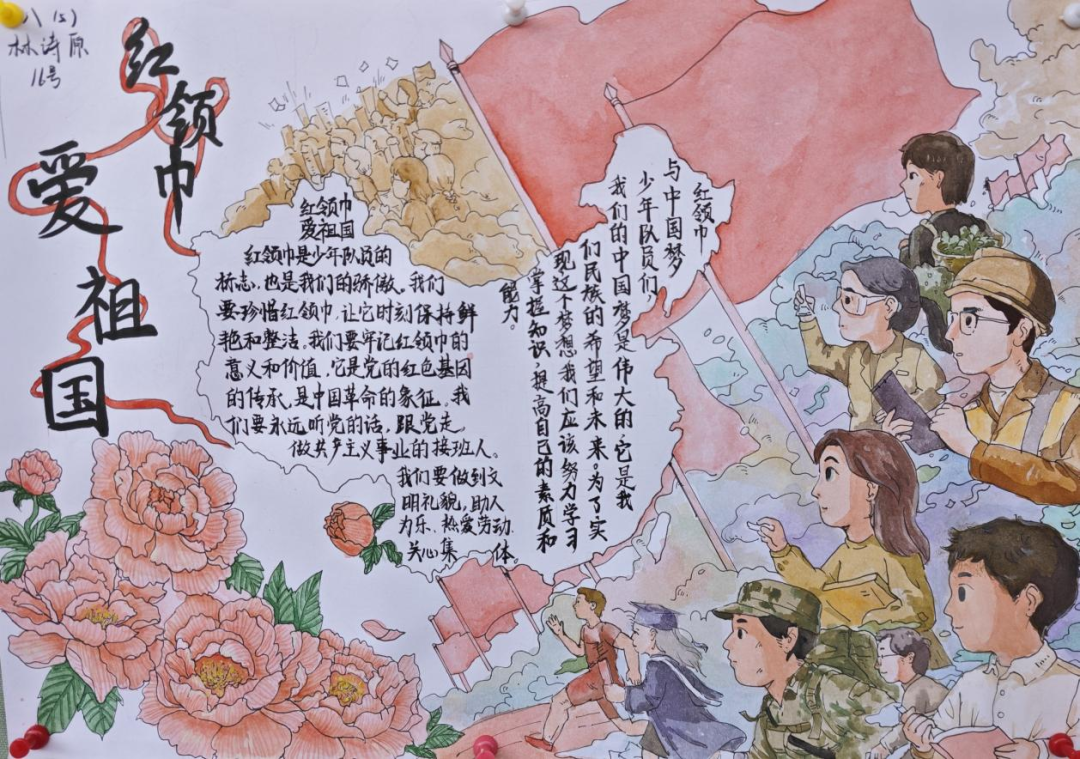 八(5)
林诗原
16号
红领巾
爱祖国
红领巾
爱祖国
红领巾是少年队员的
标志,也是我们的骄傲。我们
要珍惜红领巾,让它时刻保持鲜
艳和整洁。我们要牢记红领巾的
意义和价值,它是党的红色基因
的传承,是中国革命的象征。我
们要永远听党的话,跟党走。
做共产主义事业的接班人。
我们要做到文
明礼貌,助人
为乐、热爱劳动
关心集体。
红领巾
与中国梦
少年队员们,
我们的中国梦是伟大的,它是我
们民族的希望和未来。为了实
现这个梦想我们应该努力学习
掌握知识,提高自己的素质和
能力。